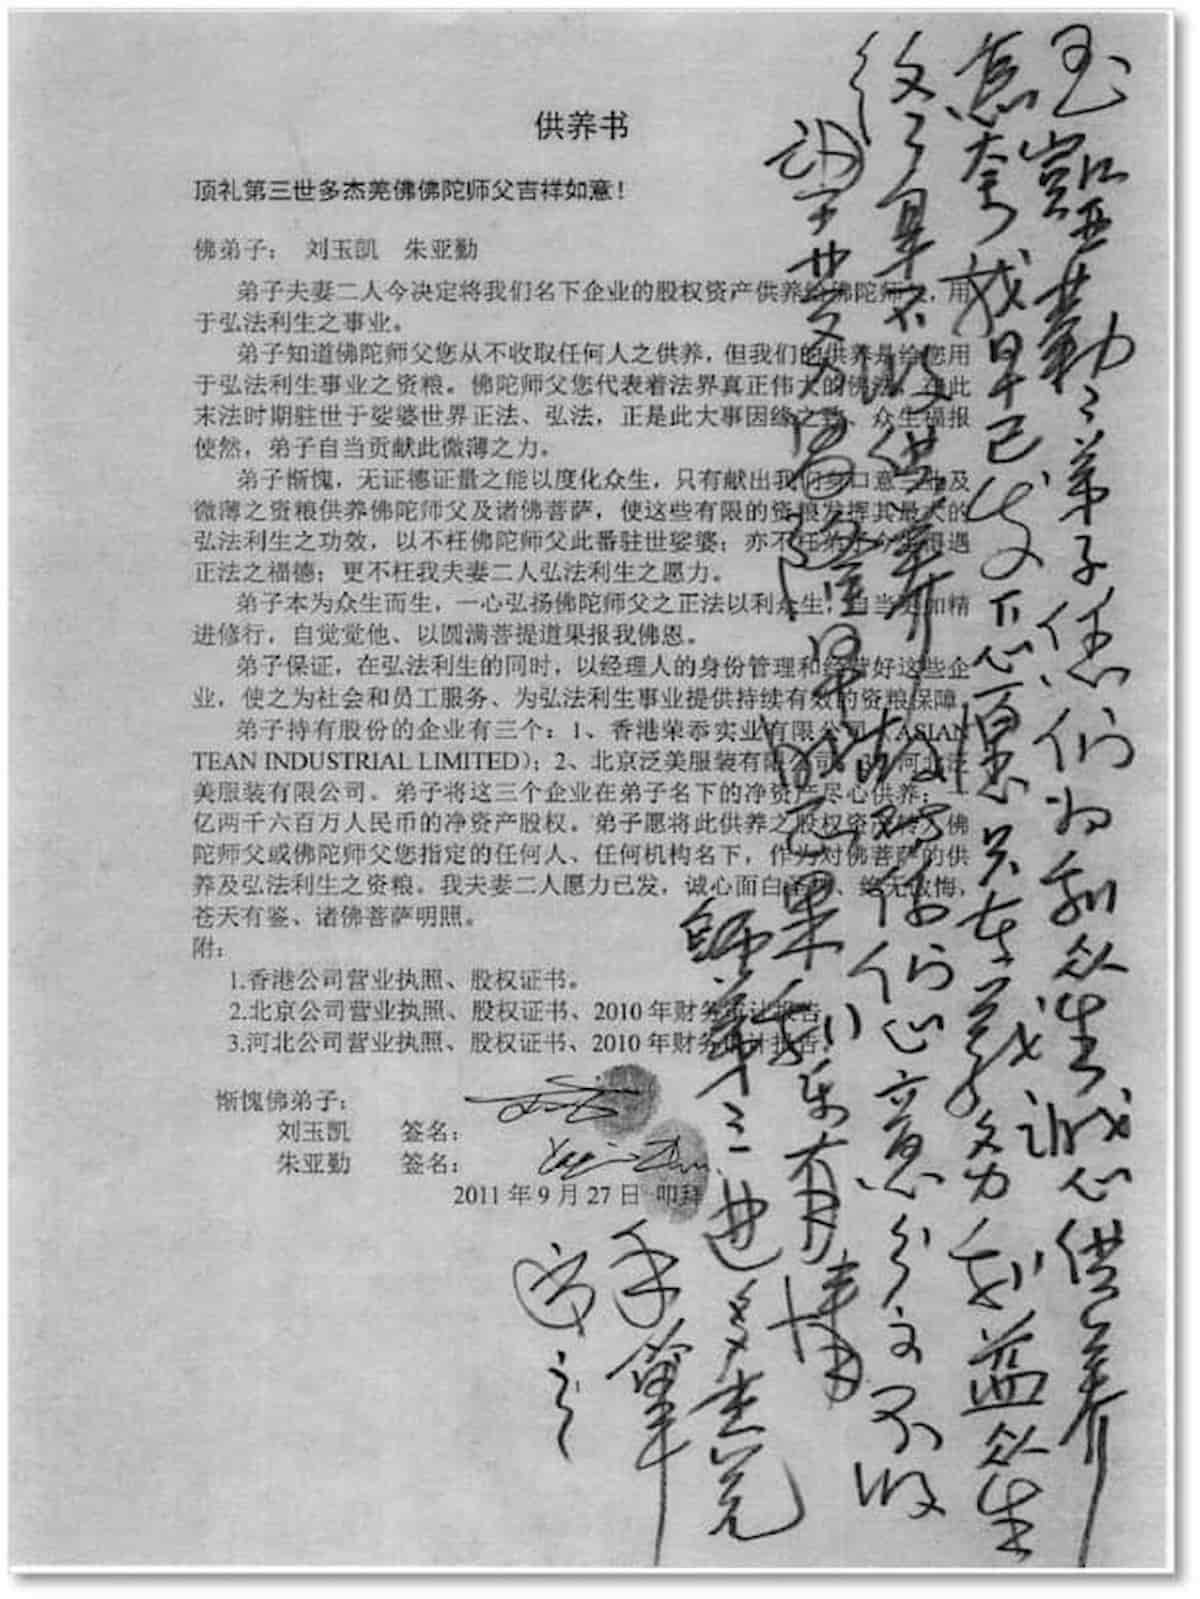 供养书
顶礼第三世多杰羌佛佛陀师父吉祥如意！
佛弟子： 刘玉凯 朱亚勤
弟子夫妻二人今决定将我们名下企业的股权资产供养给佛陀师，用
于弘法利生之事业。
弟子知道佛陀师父您从不收取任何人之供养，但我们的供养是给您用
于弘法利生事业之资粮。佛陀师父您代表着法界真正伟大的佛法，在此
末法时期驻世于娑婆世界正法、弘法，正是此大事因缘之致、众生福报
使然，弟子自当贡献此微薄之力。
弟子惭愧，无证德证量之能以度化众生，只有献出我们身口意及
微薄之资粮供养佛陀师父及诸佛菩萨，使这些有限的资粮发挥其最大的
弘法利生之功效，以不枉佛陀师父此番驻世娑婆；亦不枉得遇
正法之福德；更不枉我夫妻二人弘法利生之愿力。
弟子本为众生而生，一心弘扬佛陀师父之正法以利众生，自当更加精
进修行，自觉觉他、以圆满菩提道果报我佛恩。
弟子保证，在弘法利生的同时，以经理人的身份管理和经营好这些企
业，使之为社会和员工服务、为弘法利生事业提供持续有效的资粮保障。
弟子持有股份的企业有三个：1、香港荣忝实业有限公司（ASIAN
TEAN INDUSTRIAL LIMITED）；2、北京泛美服装有限公司；3、河北泛
美服装有限公司。弟子将这三个企业在弟子名下的净资产尽心供养：
亿两千六百万人民币的净资产股权。弟子愿将此供养之股权资产转入佛
陀师父或佛陀师父您指定的任何人、任何机构名下，作为对佛菩萨的供
养及弘法利生之资粮。我夫妻二人愿力已发，诚心面白，绝无反悔，
苍天有鉴、诸佛菩萨明照。
附：
1.香港公司营业执照、股权证书。
2.北京公司营业执照、股权证书、2010 年财务审计报告
3.河北公司营业执照、股权证书、2010 年财务审计报告。
惭愧佛弟子：
刘玉凯 签名：
朱亚勤 签名：
2011 年 9 月 27 日 叩拜
玉凯亚勤二弟子你们为利众生诚心供养
我早已发下心愿只在义务利益众生
分文不收供养你们心意分文不收
福慧早成正果利乐有情
师第三世多杰羌